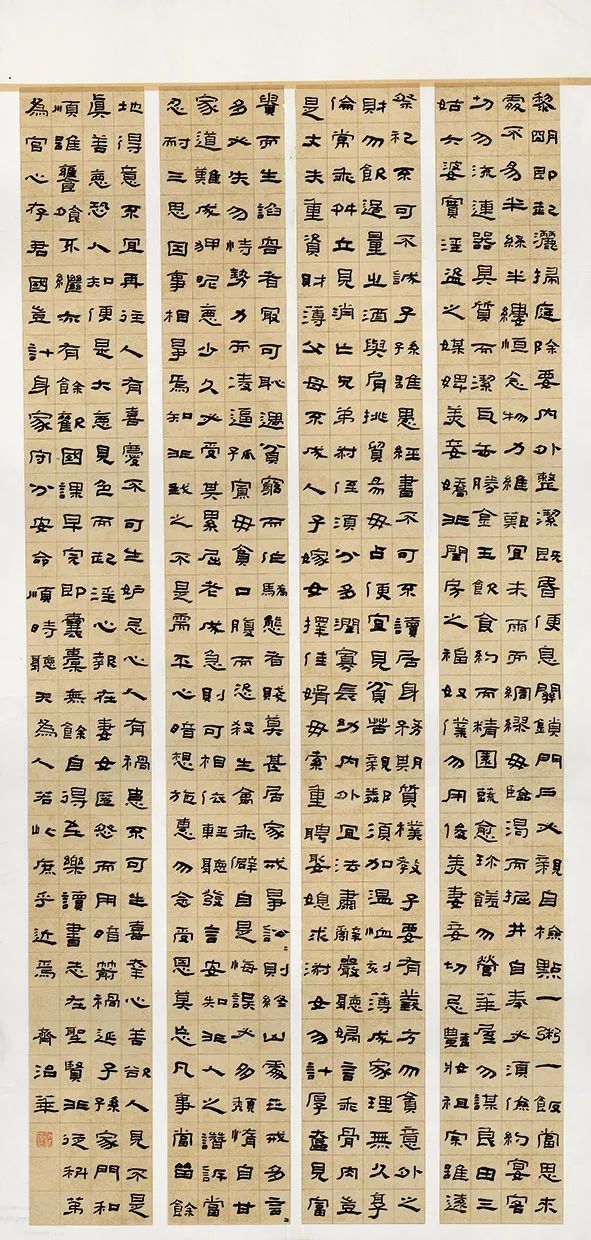 黎明即起灑掃庭除要內外整潔既昏便息關鎖門戶必親自檢點一粥一飯當思來
處不易半絲半縷恒念物力維艱宜未雨而綢繆毋臨渴而掘井自奉必須儉約宴客
切勿流連器具質而潔瓦缶勝金玉飲食約而精園蔬愈珍饈勿營華屋勿謀良田三
姑六婆實淫盜之媒婢美妾嬌非閨房之福奴僕勿用俊美妻妾切忌豔妝祖宗雖遠
祭祀不可不誠子孫雖愚經書不可不讀居身務期質樸教子要有義方勿貪意外之
財勿飲過量之酒與肩挑貿易毋占便宜見貧苦親鄰須加溫恤刻薄成家理無久享
倫常乖舛立見消亡兄弟叔侄須分多潤寡長幼內外宜法肅辭嚴聽婦言乖骨肉豈
是丈夫重資財薄父母不成人子嫁女擇佳婿毋索重聘娶媳求淑女勿計厚奩見富
貴而生諂容者最可恥遇貧窮而作驕態者賤莫甚居家戒爭訟〻則終凶處世戒多言〻
多必失勿恃勢力而凌逼孤寡毋貪口腹而恣殺生禽乖僻自是悔誤必多頹惰自甘
家道難成狎昵惡少久必受其累屈老成急則可相依輕聽發言安知非人之譖訴當
忍耐三思因事相爭焉知非我之不是需平心暗想施惠勿念受恩莫忘凡事當留餘
地得意不宜再往人有喜慶不可生妒忌心人有禍患不可生喜幸心善欲人見不是
真善惡恐人知便是大惡見色而起淫心報在妻女匿怨而用暗箭禍延子孫家門和
順雖饔飧不繼亦有餘歡國課早完即囊橐無餘自得至樂讀書志在聖賢非徒科第
為官心存君國豈計身家守分安命順時聽天為人若此庶乎近焉 齊治華